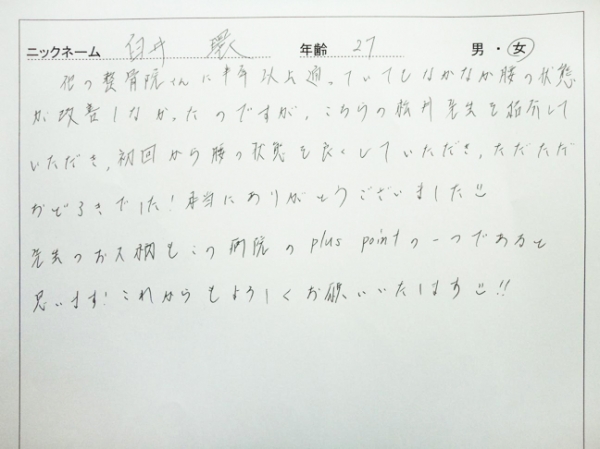 ニックネーム 臼井 環 年齢 27 男・女
他の整骨院さんに半年以上通っていてもなかなか腰の状態
が改善しなかったのですが、こちらの 先生を紹介して
いただき、初回から腰の状態を良くしていただき、ただただ
おどろきでした!本当にありがとうございました
先生のお人柄もこの病院のplus pointの一つであると
思います!これからもよろしくお願いいたします!!